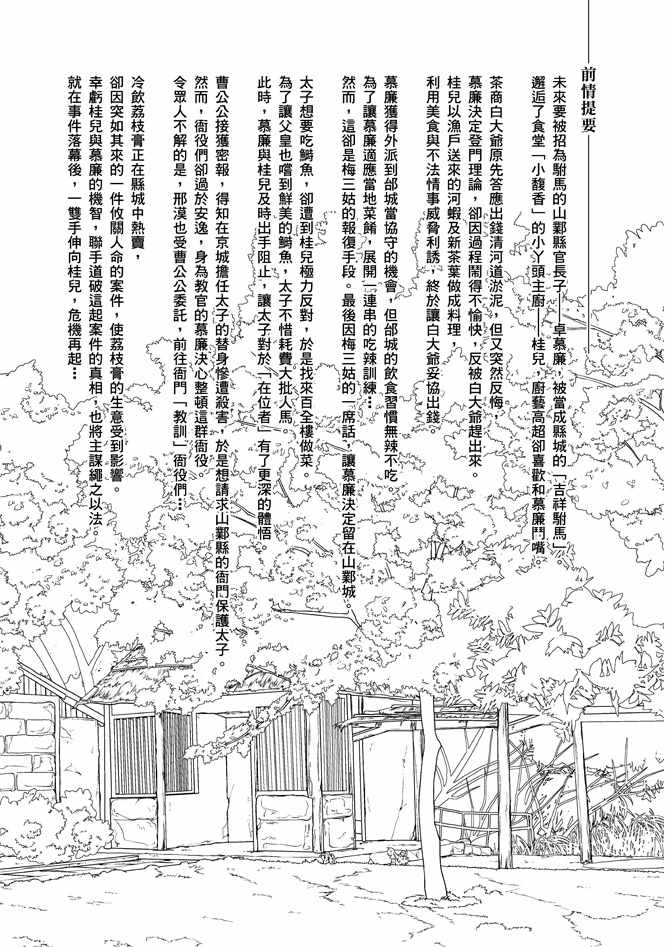 前情提要
未來要被招為駙馬的山鄴縣官長子——卓慕廉，被當成縣城的「吉祥駙馬」。
邂逅了食堂「小馥香」的小丫頭主廚——桂兒，廚藝高超卻喜歡和慕廉鬥嘴。
茶商白大爺原先答應出錢清河道淤泥，但又突然反悔，
慕廉決定登門理論，卻因過程鬧得不愉快，反被白大爺趕出來。
桂兒以漁戶送來的河蝦及新茶葉做成料理，
利用美食與不法情事威脅利誘，終於讓白大爺妥協出錢。
慕廉獲得外派到邰城當協守的機會，但邰城的飲食習慣無辣不吃。
為了讓慕廉適應當地菜餚，展開一連串的吃辣訓練…
然而，這卻是梅三姑的報復手段。最後因梅三姑的一席話，讓慕廉決定留在山鄴城。
太子想要吃鰣魚，卻遭到桂兒極力反對，於是找來百全樓做菜。
為了讓父皇也嚐到鮮美的鰣魚，太子不惜耗費大批人馬。
此時，慕廉與桂兒及時出手阻止，讓太子對於「在位者」有了更深的體悟。
曹公公接獲密報，得知在京城擔任太子的替身慘遭殺害，於是想請求山鄴縣的衙門保護太子。
然而，衙役們卻過於安逸，身為教官的慕廉決心整頓這群衙役。
令眾人不解的是，邢漠也受曹公公委託，前往衙門「教訓」衙役們…
冷飲荔枝膏正在縣城中熱賣，
卻因突如其來的一件攸關人命的案件，使荔枝膏的生意受到影響。
幸虧桂兒與慕廉的機智，聯手道破這起案件的真相，也將主謀繩之以法。
就在事件落幕後，一雙手伸向桂兒，危機再起…